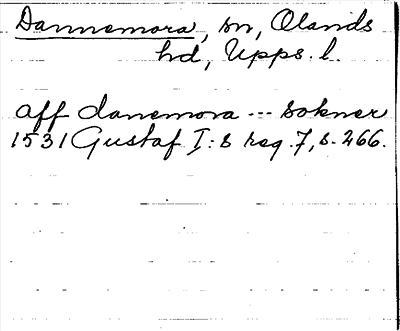 Dannemora, sn, Olands
hd, Upps. l.
aff danemora --- sokner
1531 Gustaf I:s reg. 7, s. 266.